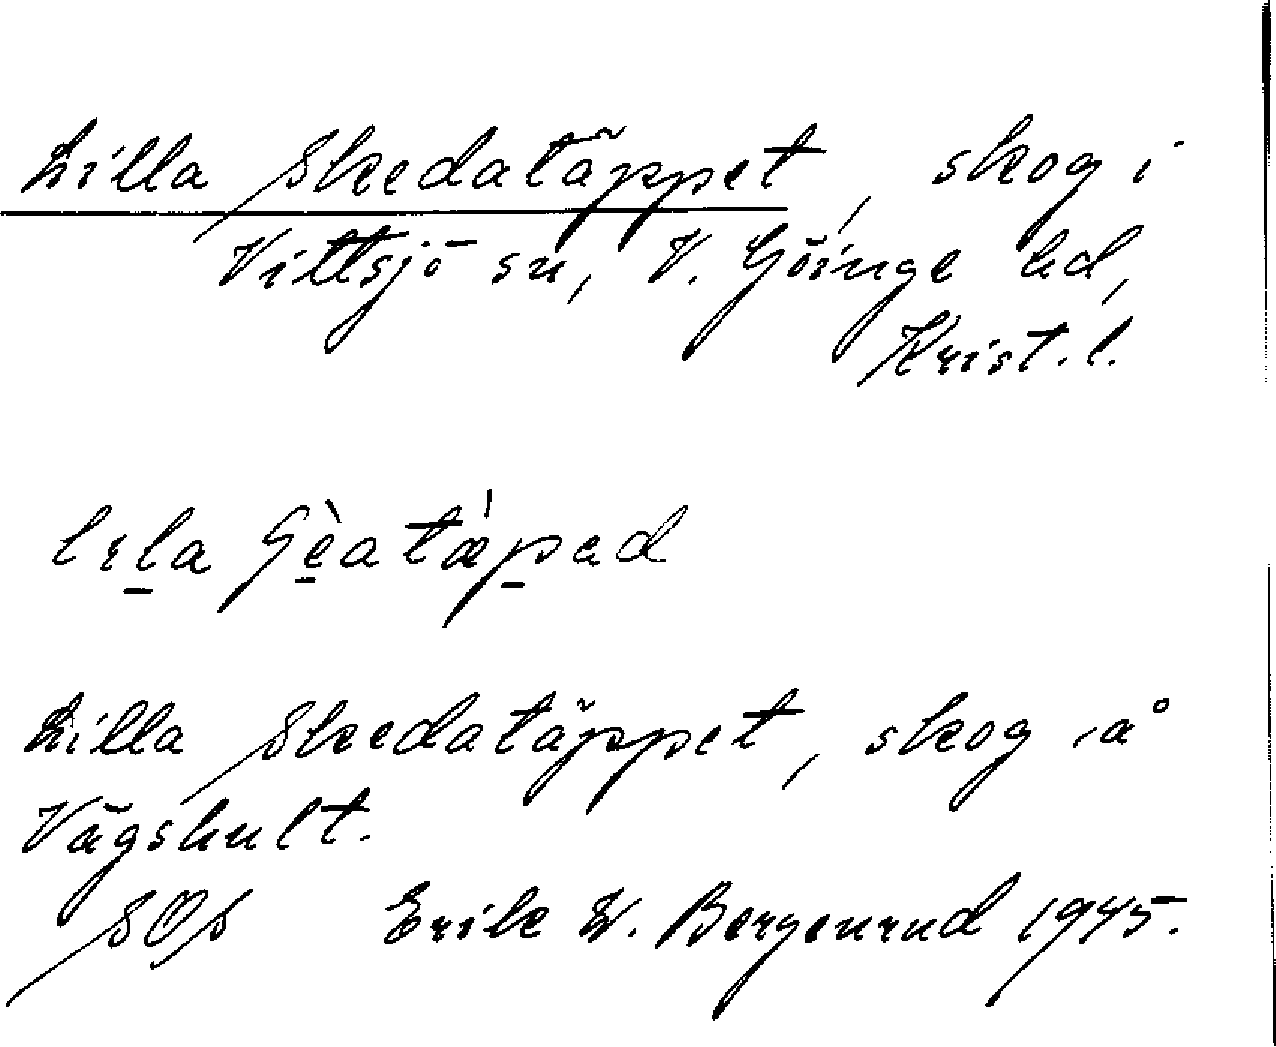 Lilla Skedatäppet, skog i
Vittsjö sn, V. Göinge hd,
Krist. l.
Lilla Skedatäppet, skog å
Vägshult.
SOS Erik W. Bergenrud 1945.